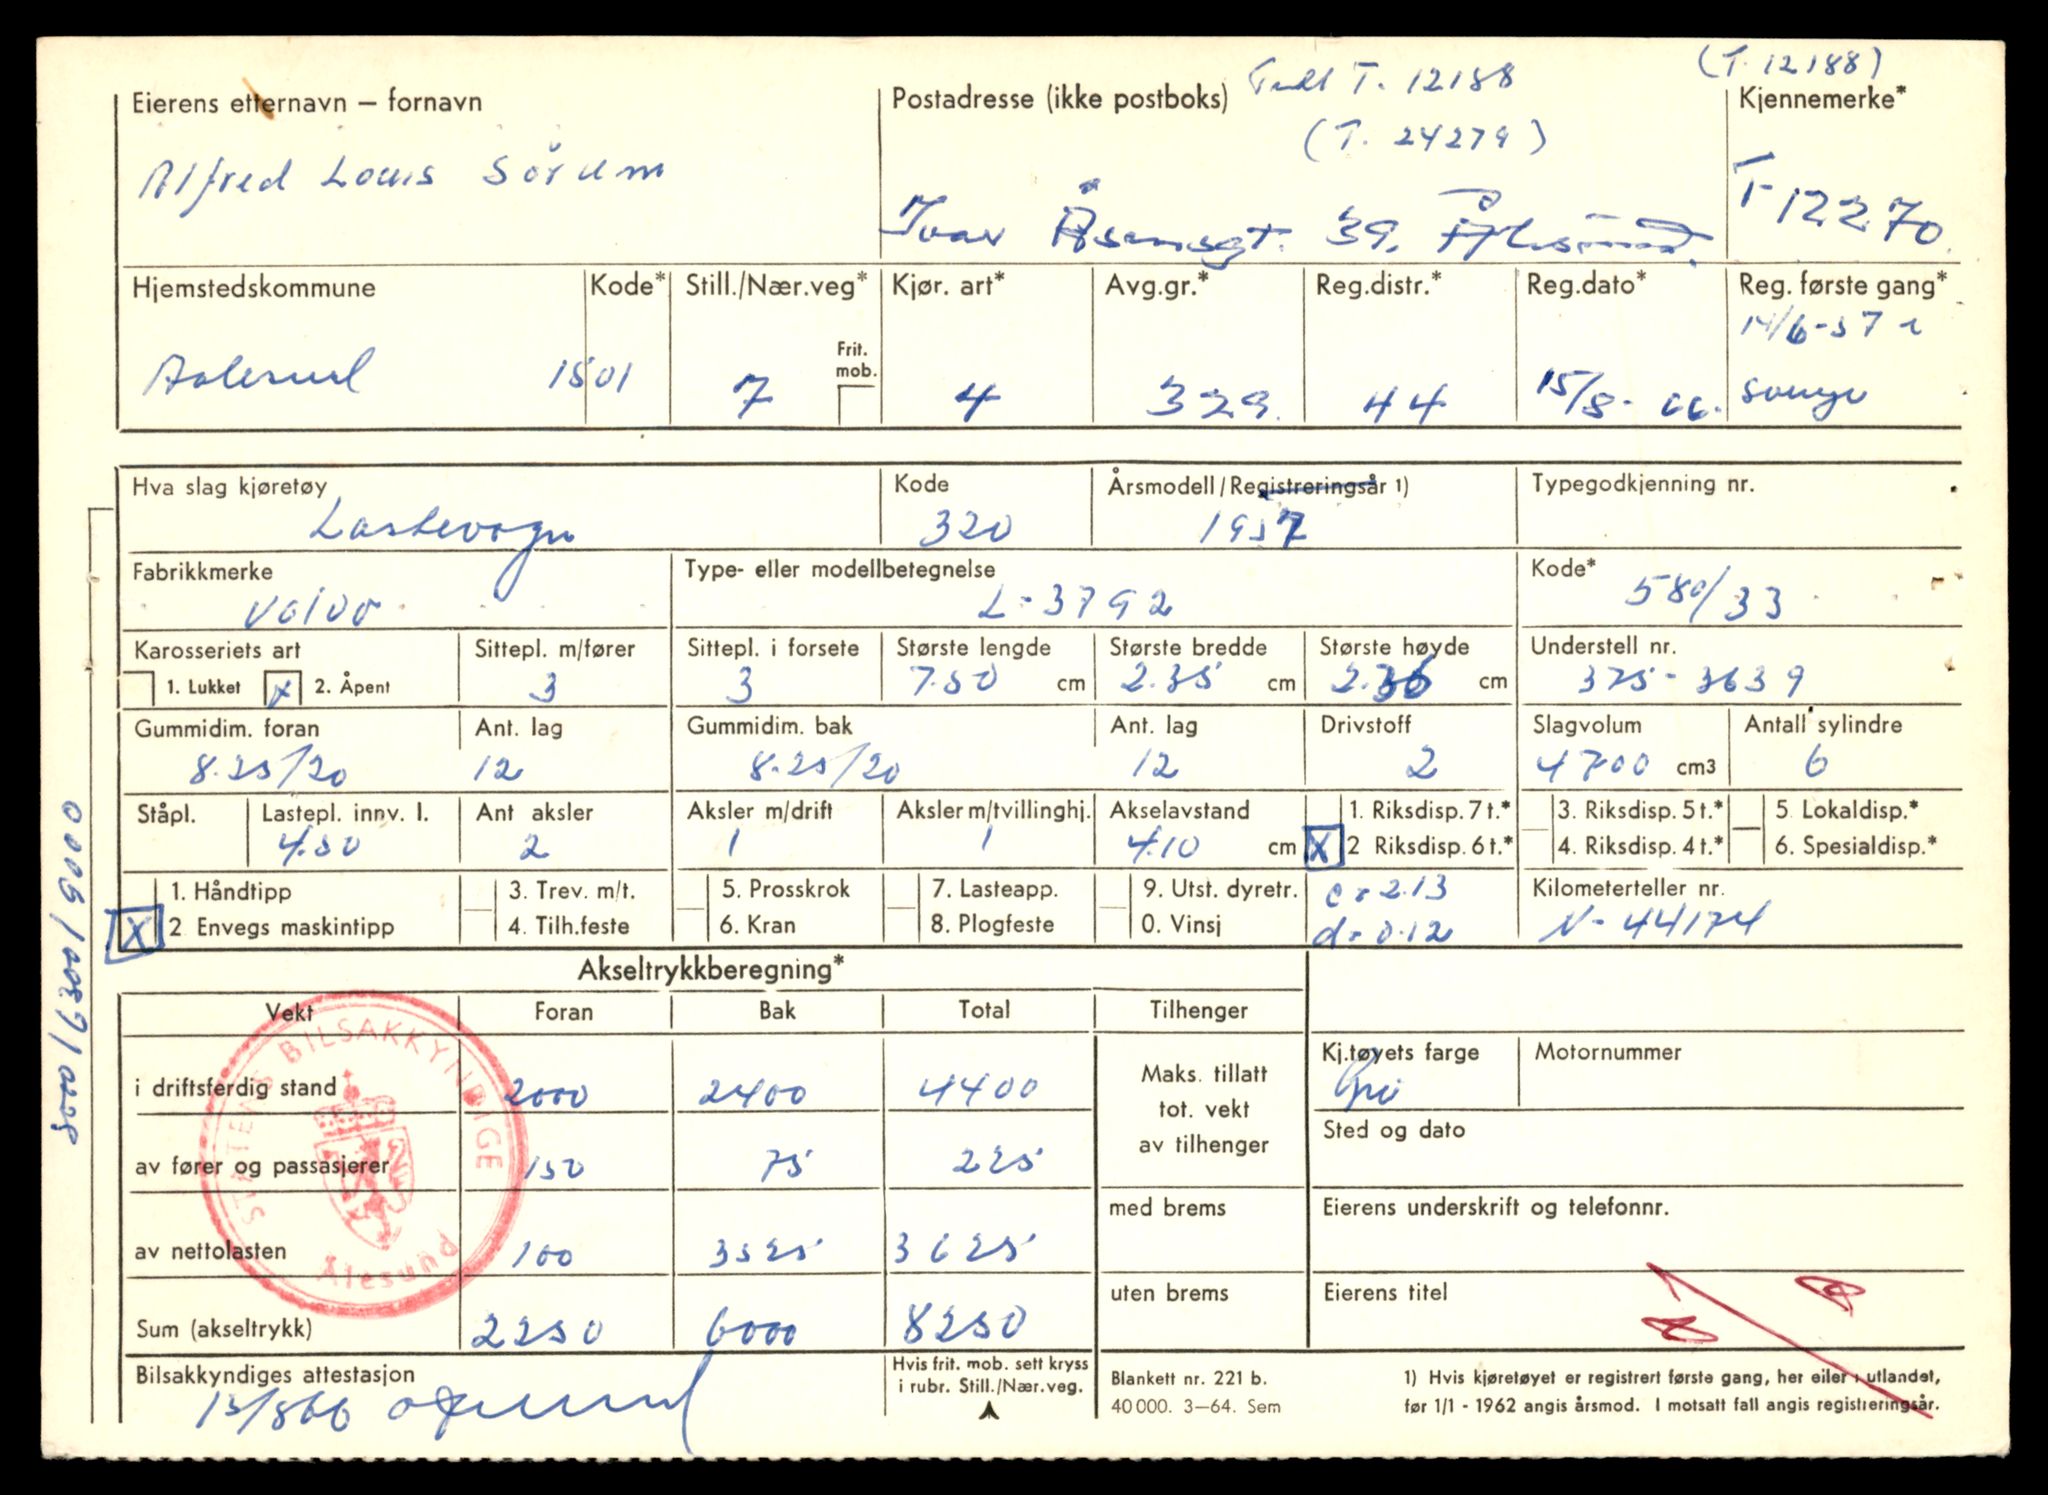 (T. 12188)
T. 12188
Eierens etternavn – fornavn
Postadresse (ikke postboks)
Kjennemerke*
(T. 24279)
Alfred Louis Sörum
Ivar Åsensgt. 39, Ålesund.
T-12270.
Hjemstedskommune Kode* Still./Nær.veg* Kjør. art* Avg.gr.* Reg.distr.* Reg.dato* Reg. første gang*
14/6-57 i
Frit. mob.
Aalesund 1501 7 4 329. 44 15/8-66. Sverge
Hva slag kjøretøy Kode Årsmodell/Registreringsår 1) Typegodkjenning nr.
Lastevogn 320 1957
Fabrikkmerke Type- eller modellbetegnelse Kode*
Volvo L-3792 580/33
Karosseriets art Sittepl. m/fører Sittepl. i forsete Største lengde Største bredde Største høyde Understell nr.
1. Lukket X 2. Åpent 3 3 7.50 cm 2.35 cm 2.36 cm 375-3639
Gummidim. foran Ant. lag Gummidim. bak Ant. lag Drivstoff Slagvolum Antall sylindre
8.25/20 12 8.25/20 12 2 4700 cm3 6
Ståpl. Lastepl. innv. l. Ant aksler Aksler m/drift Aksler m/tvillinghj. Akselavstand 1. Riksdisp. 7 t.* 3. Riksdisp. 5 t.* 5. Lokaldisp.*
4.50 2 1 1 4.10 cm X 2 Riksdisp. 6 t.* 4. Riksdisp. 4 t.* 6. Spesialdisp.*
1. Håndtipp 3. Trev. m/t. 5. Prosskrok 7. Lasteapp. 9. Utst. dyretr. c = 2.13 Kilometerteller nr.
X 2 Envegs maskintipp 4. Tilh.feste 6. Kran 8. Plogfeste 0. Vinsj d = 0.12 N-44174
Akseltrykkberegning*
Vekt Foran Bak Total Tilhenger
Kj.tøyets farge Motornummer
i driftsferdig stand 2000 2400 4400 Maks. tillatt tot. vekt av tilhenger
Sted og dato
av fører og passasjerer 150 75 225
med brems Eierens underskrift og telefonnr.
av nettolasten 100 3525 3625
uten brems Eierens titel
Sum (akseltrykk) 2250 6000 8250
STATENS BILSAKKYNDIGE
Ålesund
Bilsakkyndiges attestasjon
Hvis frit. mob. sett kryss
i rubr. Still./Nær.veg.
15/866
Blankett nr. 221 b.
40 000. 3–64. Sem
1) Hvis kjøretøyet er registrert første gang, her eller i utlandet,
før 1/1 - 1962 angis årsmod. I motsatt fall angis registreringsår.